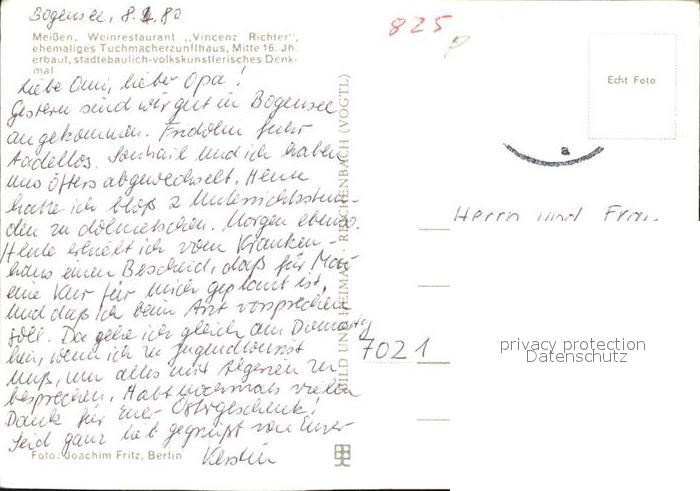 Bogensee, 8.4.80
825
Meißen, Weinrestaurant „Vincenz Richter",
ehemaliges Tuchmacherzunfthaus, Mitte 16. Jh.
erbaut, städtebaulich-volkskünstlerisches Denk-
mal
Echt Foto
a
Liebe Omi, lieber Opa!
Gestern sind wir gut in Bogensee
angekommen. Fridolin fuhr
tadellos. und ich haben
uns öfters abgewechselt. Heute
hatte ich bloß 2 Unterrichtsstun-
den zu dolmetschen. Morgen ebenso.
Heute erhielt ich vom Kranken-
haus einen Bescheid, daß für Mai
eine Kur für mich geplant ist,
und daß ich beim Arzt vorsprechen
soll. Da gehe ich gleich am Dienstag
hin, wenn ich zu Jugendtourist
muß, um alles mit Algerien zu
besprechen. Habt nochmals vielen
Dank für Euer Ostergeschenk!
Seid ganz lieb gegrüßt von Eurer
Kerstin
Foto: Joachim Fritz, Berlin
BILD UND HEIMAT REICHENBACH (VOGTL)
Herrn und Frau
7021
privacy protection
Datenschutz